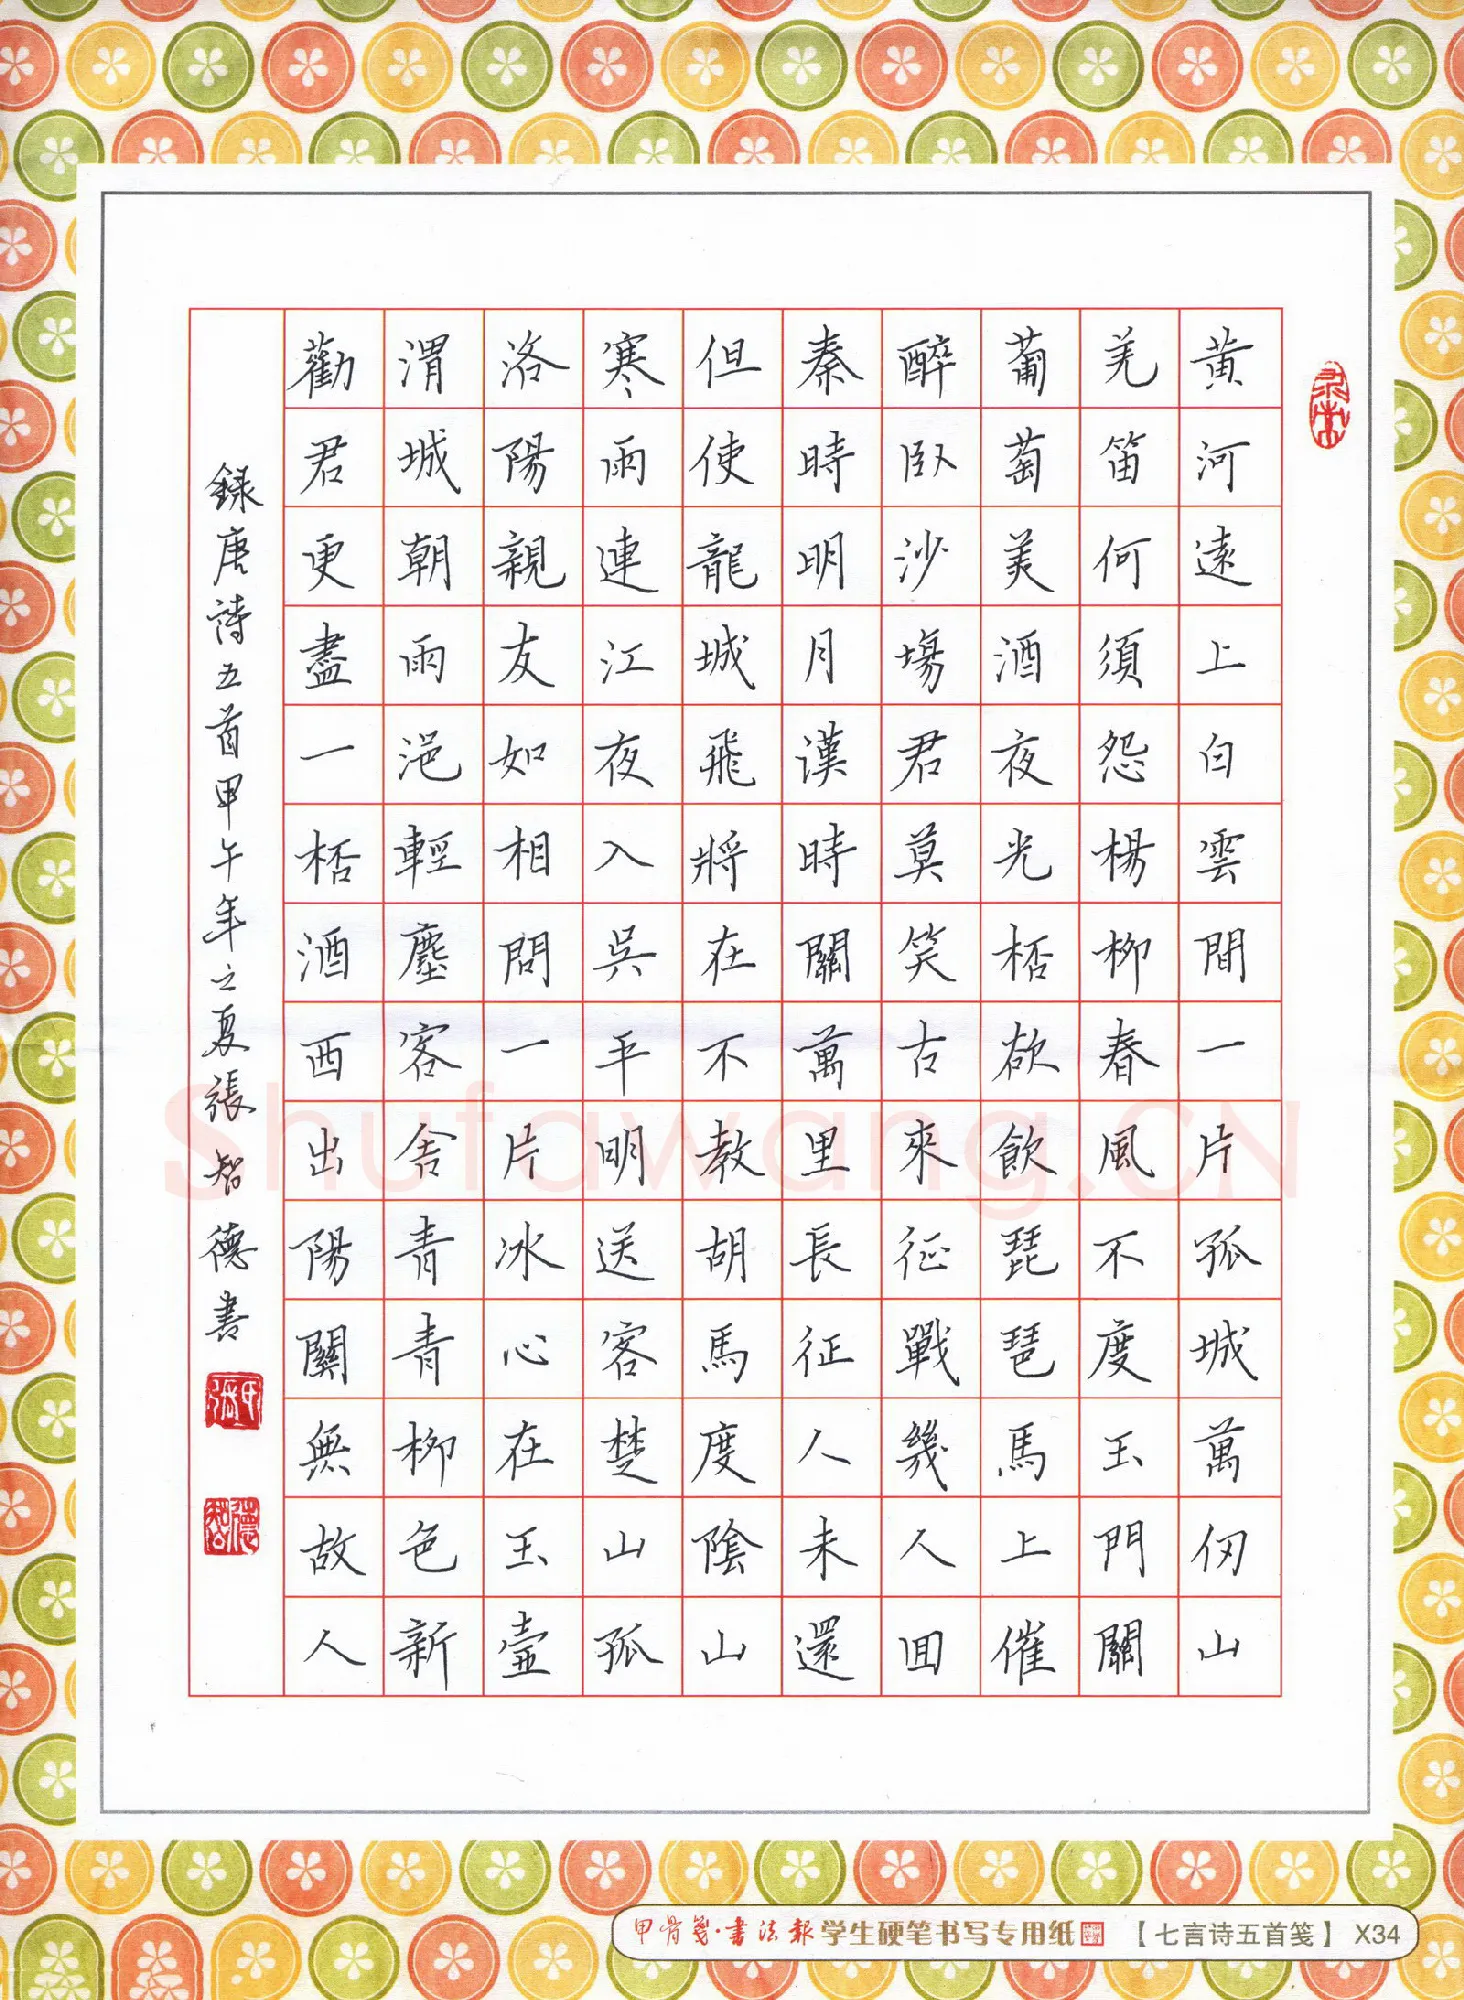 黄河遠上白雲間一片孤城萬仞山
羌笛何須怨楊柳春風不度玉門關
葡萄美酒夜光桮欲飲琵琶馬上催
醉卧沙場君莫笑古來征戰幾人囬
秦時明月漢時關萬里長征人未還
但使龍城飛將在不教胡馬度陰山
寒雨連江夜入吳平明送客楚山孤
洛陽親友如相問一片冰心在玉壺
渭城朝雨浥輕塵客舍青青柳色新
勸君更盡一桮酒西出陽關無故人
録唐詩五首甲午年之夏張智德書
Shufawang.CN
甲骨笺·書法報学生硬笔书写专用纸【七言诗五首笺】X34